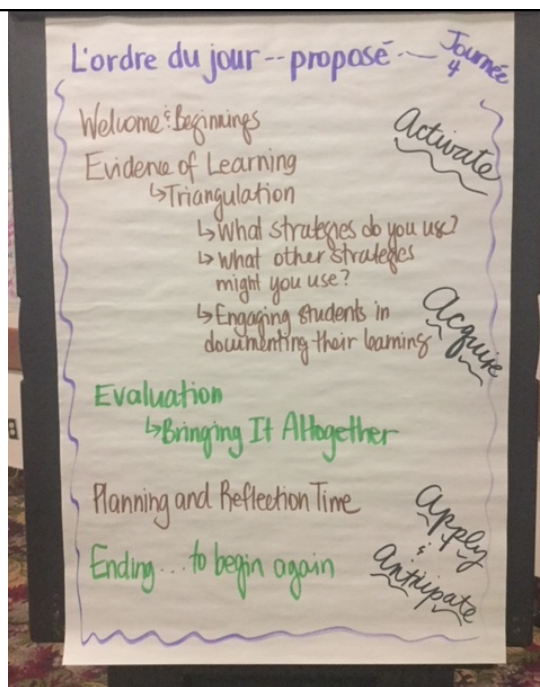 L'ordre du jour -- proposé -- Journée 4
Welcome & Beginnings
Activate
Evidence of Learning
↳ Triangulation
↳ What strategies do you use?
↳ What other strategies
might you use?
↳ Engaging students in
documenting their learning
Acquire
Evaluation
↳ Bringing It Altogether
Planning and Reflection Time
Apply
&
Anticipate
Ending... to begin again